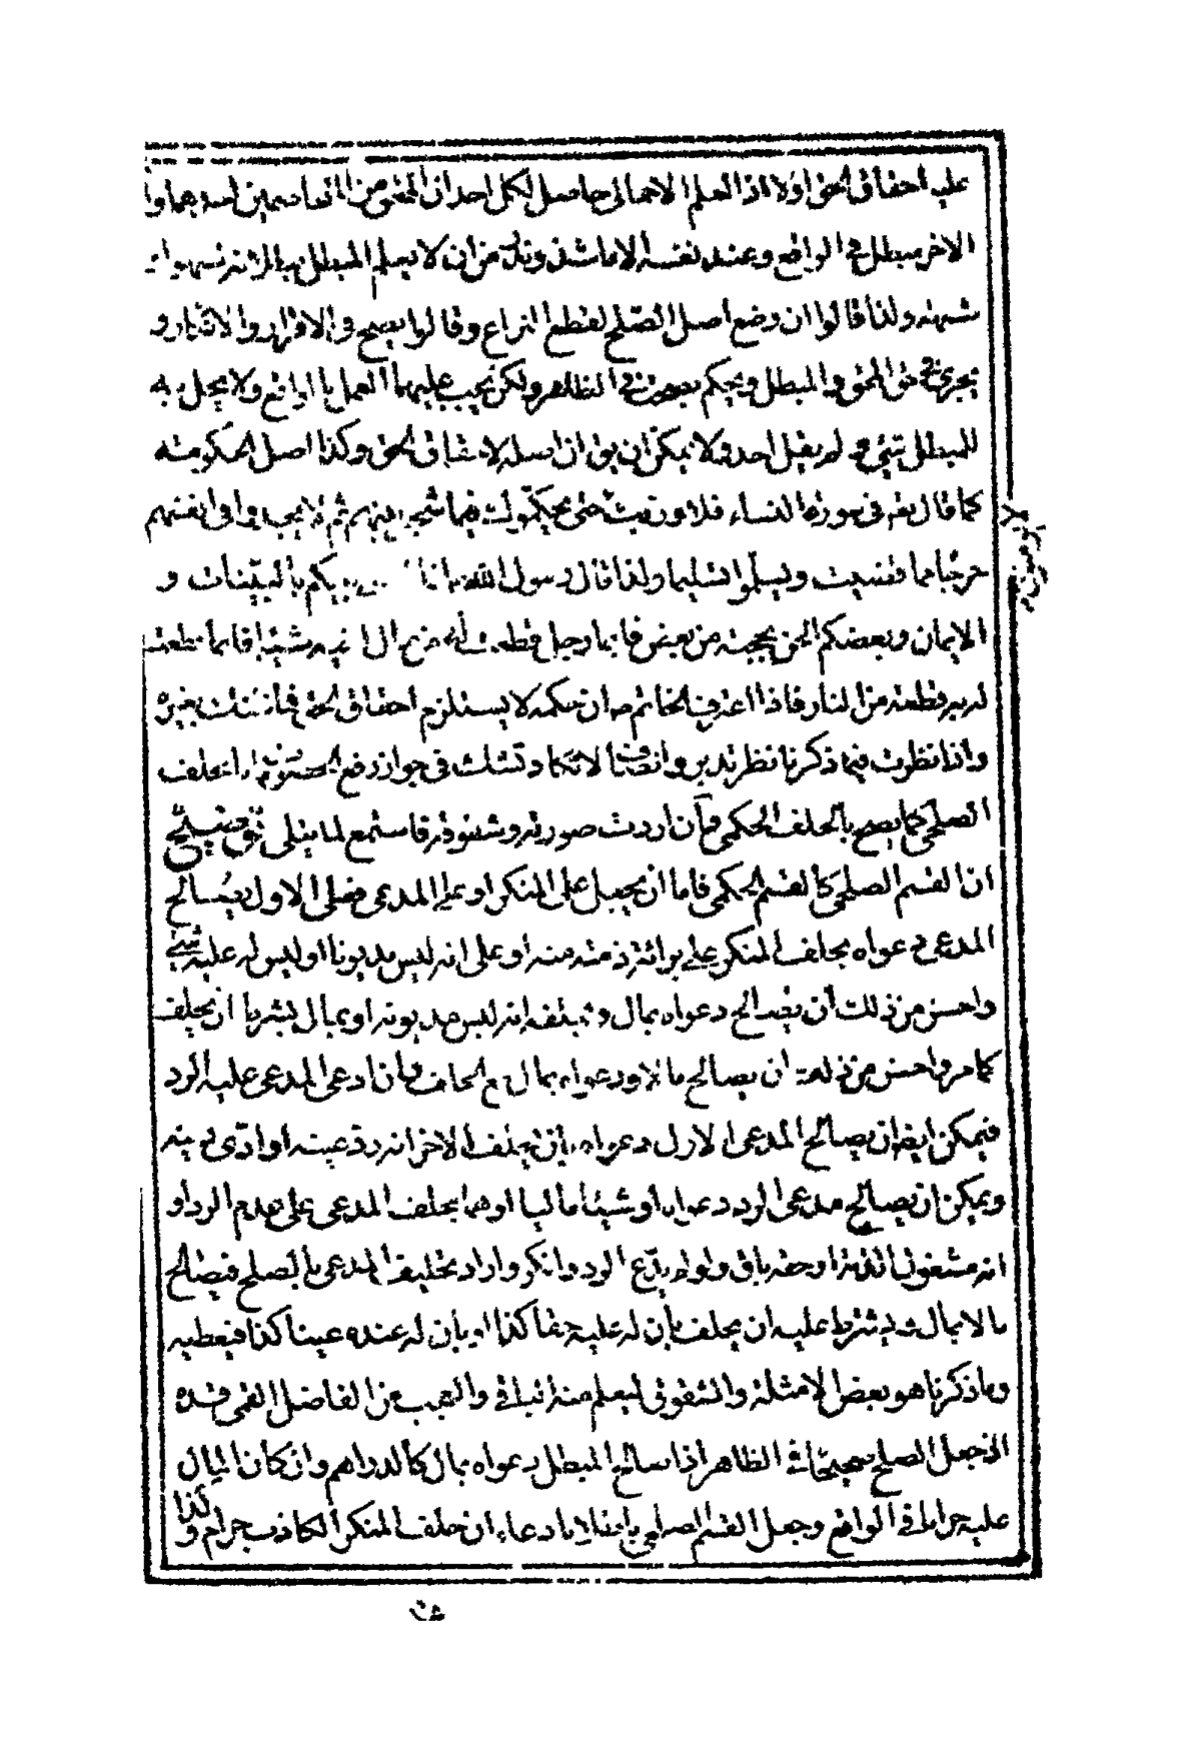 عليه احقاق الحق اولا اذ العلم الاجمالى حاصل لكل احد ان المحق من المتخاصمين احدهما و
الاخر مبطل فى الواقع وعند نفسه الا ما شذ وندر من ان لا يعلم المبطل
شبهته ولذا قالوا ان وضع اصل الصلح لقطع النزاع وقالوا يصح فى الاقرار والانكار و
يجرى فى حق المحق والمبطل ويحكم بصحته فى الظاهر ولكن يجب عليهما العمل بالواقع ولا يحل به
للمبطل شئ ولم يقل احد ولا يمكن ان يق ان اصله لاحقاق الحق وكذا اصل الحكومة
كما قال تعه فى سورة النساء فلا وربك حتى يحكموك فيما شجر بينهم ثم لا يجدوا فى انفسهم
حرجا مما قضيت ويسلموا تسليما ولذا قال رسول الله ص انما بينكم بالبينات و
الايمان وبعضكم الحن بحجته من بعض فايما رجل قطعت له من مال اخيه شيئا فانما قطعت
له به قطعة من النار فاذا اعترف الخاتم ص ان حكمه لا يستلزم احقاق الحق فما ظنك بغيره
واذا نظرت فيما ذكرنا نظر تدبر وانصاف لا تكاد تشك فى جواز رفع الخصومة بالحلف
الصلحى كما يصح بالحلف الحكمى فان اردت صورته وشقوقه فاستمع لما يتلى توضيح
ان القسم الصلحى كالقسم الحكمى فاما ان يجعل على المنكر او على المدعى فعلى الاول يصالح
المدعى دعواه بحلف المنكر على برائة ذمته منه او على انه ليس مديونا او ليس له عليه شئ
واحسن من ذلك ان يصالح دعواه بمال و يحلفه انه ليس مديونه او بمال بشرط ان يحلف
كما مر واحسن من ذلك ان يصالح مالا ودعواه بمال مع الحلف وان ادعى المدعى عليه الرد
فيمكن ايضا ان يصالح المدعى الاول دعواه بان يحلف الاخر انه رد عينه او ادى دينه
ويمكن ان يصالح مدعى الرد دعواه او شيئا ماليا او هما بحلف المدعى على عدم الرد او
انه مشغول الذمة او حقه باق ولو لم يدع الرد وانكر واراد تحليف المدعى بالصلح فيصالح
مالا بمال ويشترط عليه ان يحلف بان له عليه حقا كذا او بان له عنده عينا كذا فيعطيه
وما ذكرنا هو بعض الامثلة والشقوق ليعلم منه الباقى والعجب من الفاضل القمى قده
انه جعل الصلح صحيحا فى الظاهر اذا صالح المبطل دعواه بمال كالدراهم وان كان المال
عليه حراما فى الواقع وجعل القسم الصلحى باطلا بادعاء ان حلف المنكر الكاذب حرام ولذا